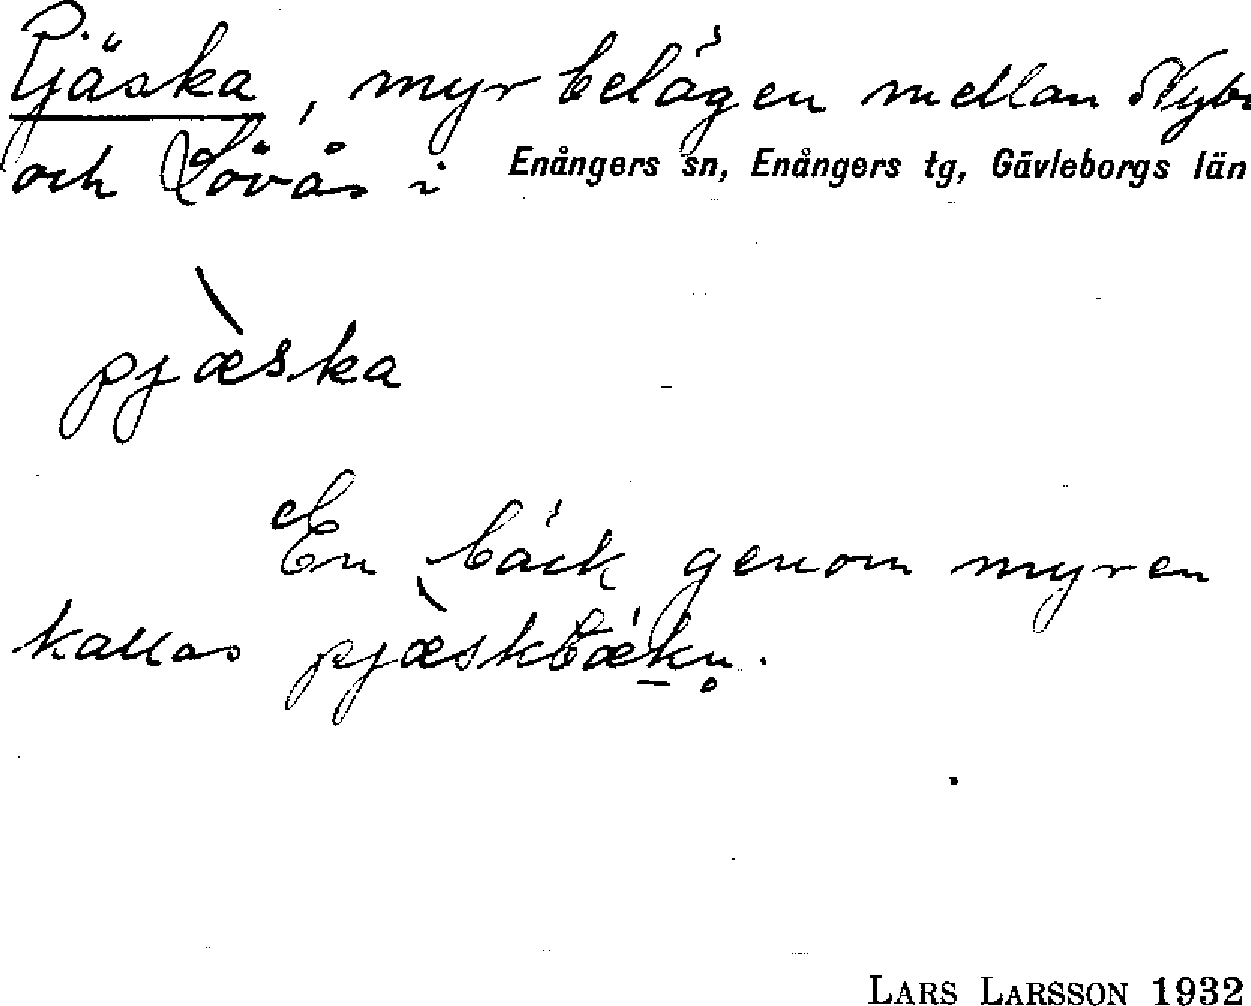 Pjäska, myr belägen mellan
och Lövås i Enångers sn, Enångers tg, Gävleborgs län
pjæ̀ska
En bäck genom myren
kallas pjæ̀skbæḵn̥.
LARS LARSSON 1932